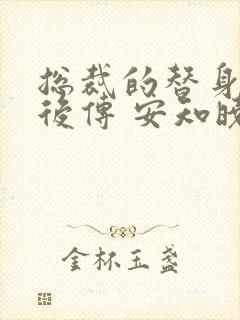 總裁的替身
後傳 安知曉
金杯玉盞